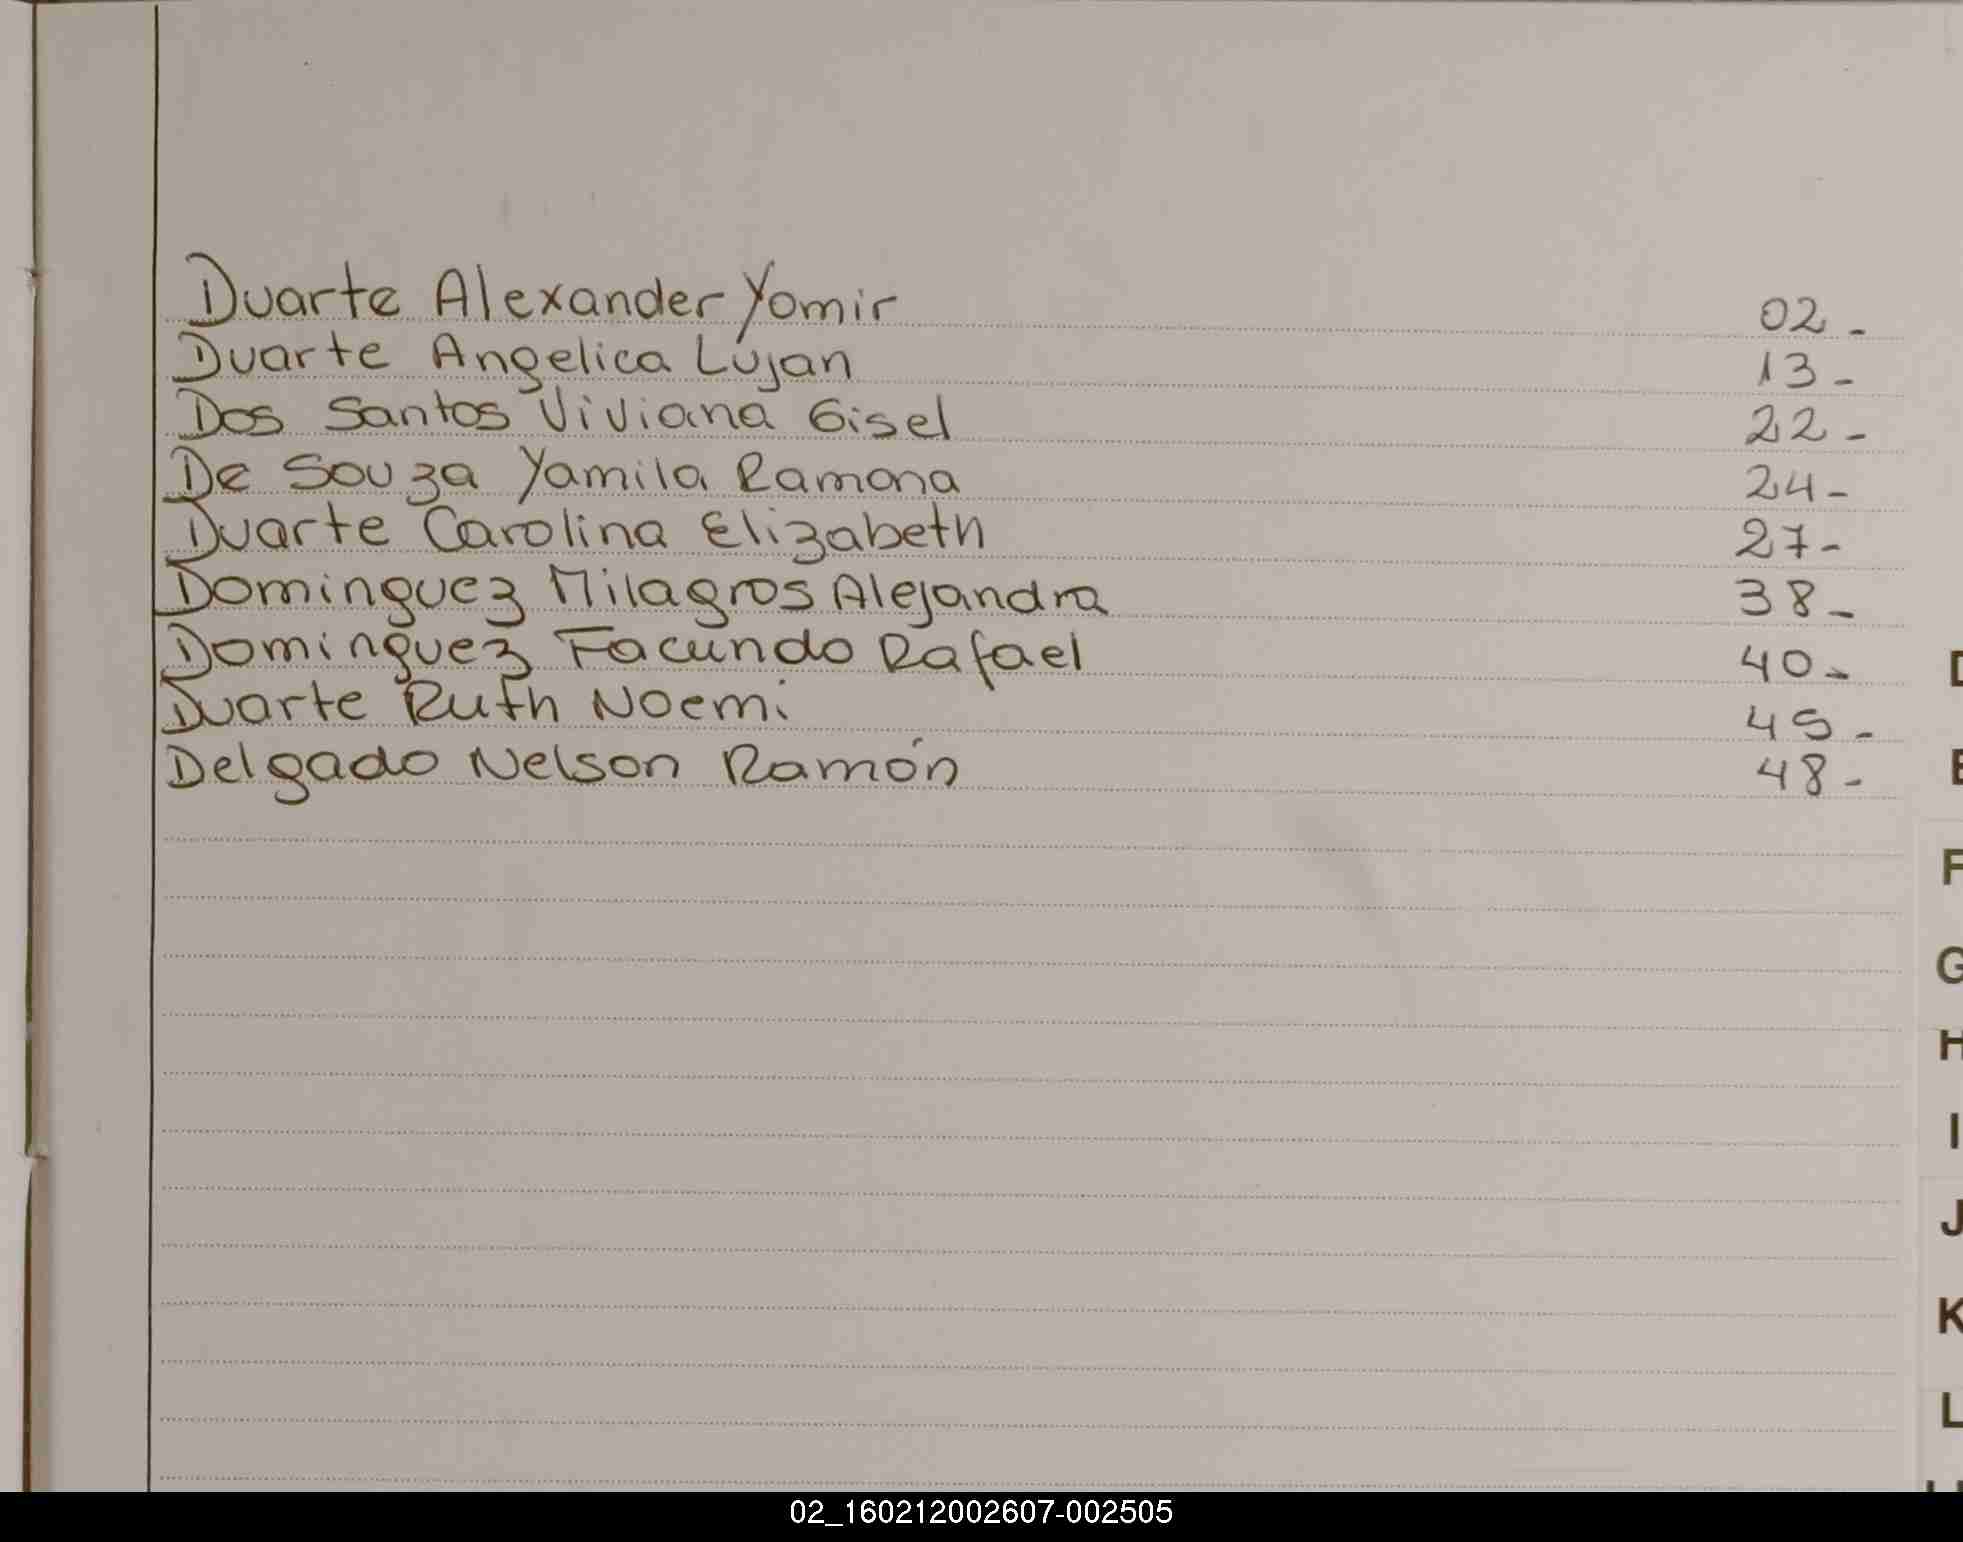 Duarte Alexander Yomir 02-
Duarte Angelica Lujan 13-
Dos Santos Viviana Gisel 22-
De Souza Yamila Ramona 24-
Duarte Carolina Elizabeth 27-
Dominguez Milagros Alejandra 38-
Dominguez Facundo Rafael 40-
Duarte Ruth Noemi 45-
Delgado Nelson Ramón 48-
D
E
F
G
H
I
J
K
L
02_160212002607-002505